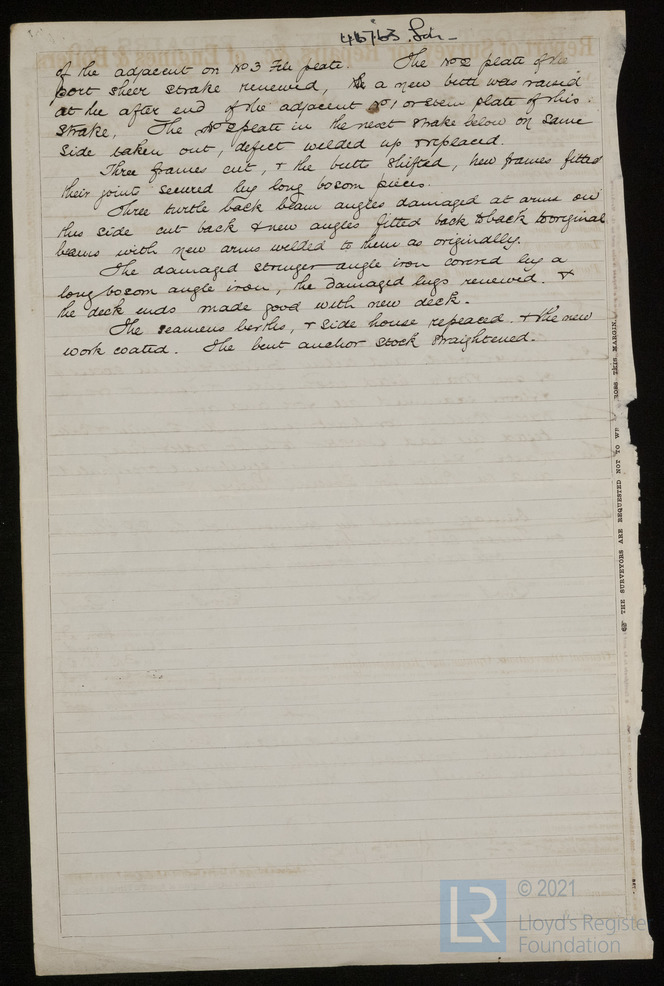 of the adjacent on No 3 plate. The No 2 plate of the
port sheer strake renewed, & a new butt was raised
at the after end of the adjacent No 1 or stem plate of this
strake. The No 2 plate in the next strake below on same
side taken out, defect welded up & replaced.
Three frames cut, & the butts shifted, new frames fitted
their joints secured by long bosom pieces.
Three turtle back beam angles damaged at arms on
this side cut back & new angles fitted back to back to original
beams with new arms welded to them as originally.
The damaged stringer angle iron covered by a
long bosom angle iron, the damaged lugs renewed. &
the deck ends made good with new deck.
The seamens berths, & side house replaced. & the new
work coated. The bent anchor stock straightened.
THE SURVEYORS ARE REQUESTED NOT TO WR ROSS THIS MARGIN
LR
© 2021
Lloyd's Register
Foundation